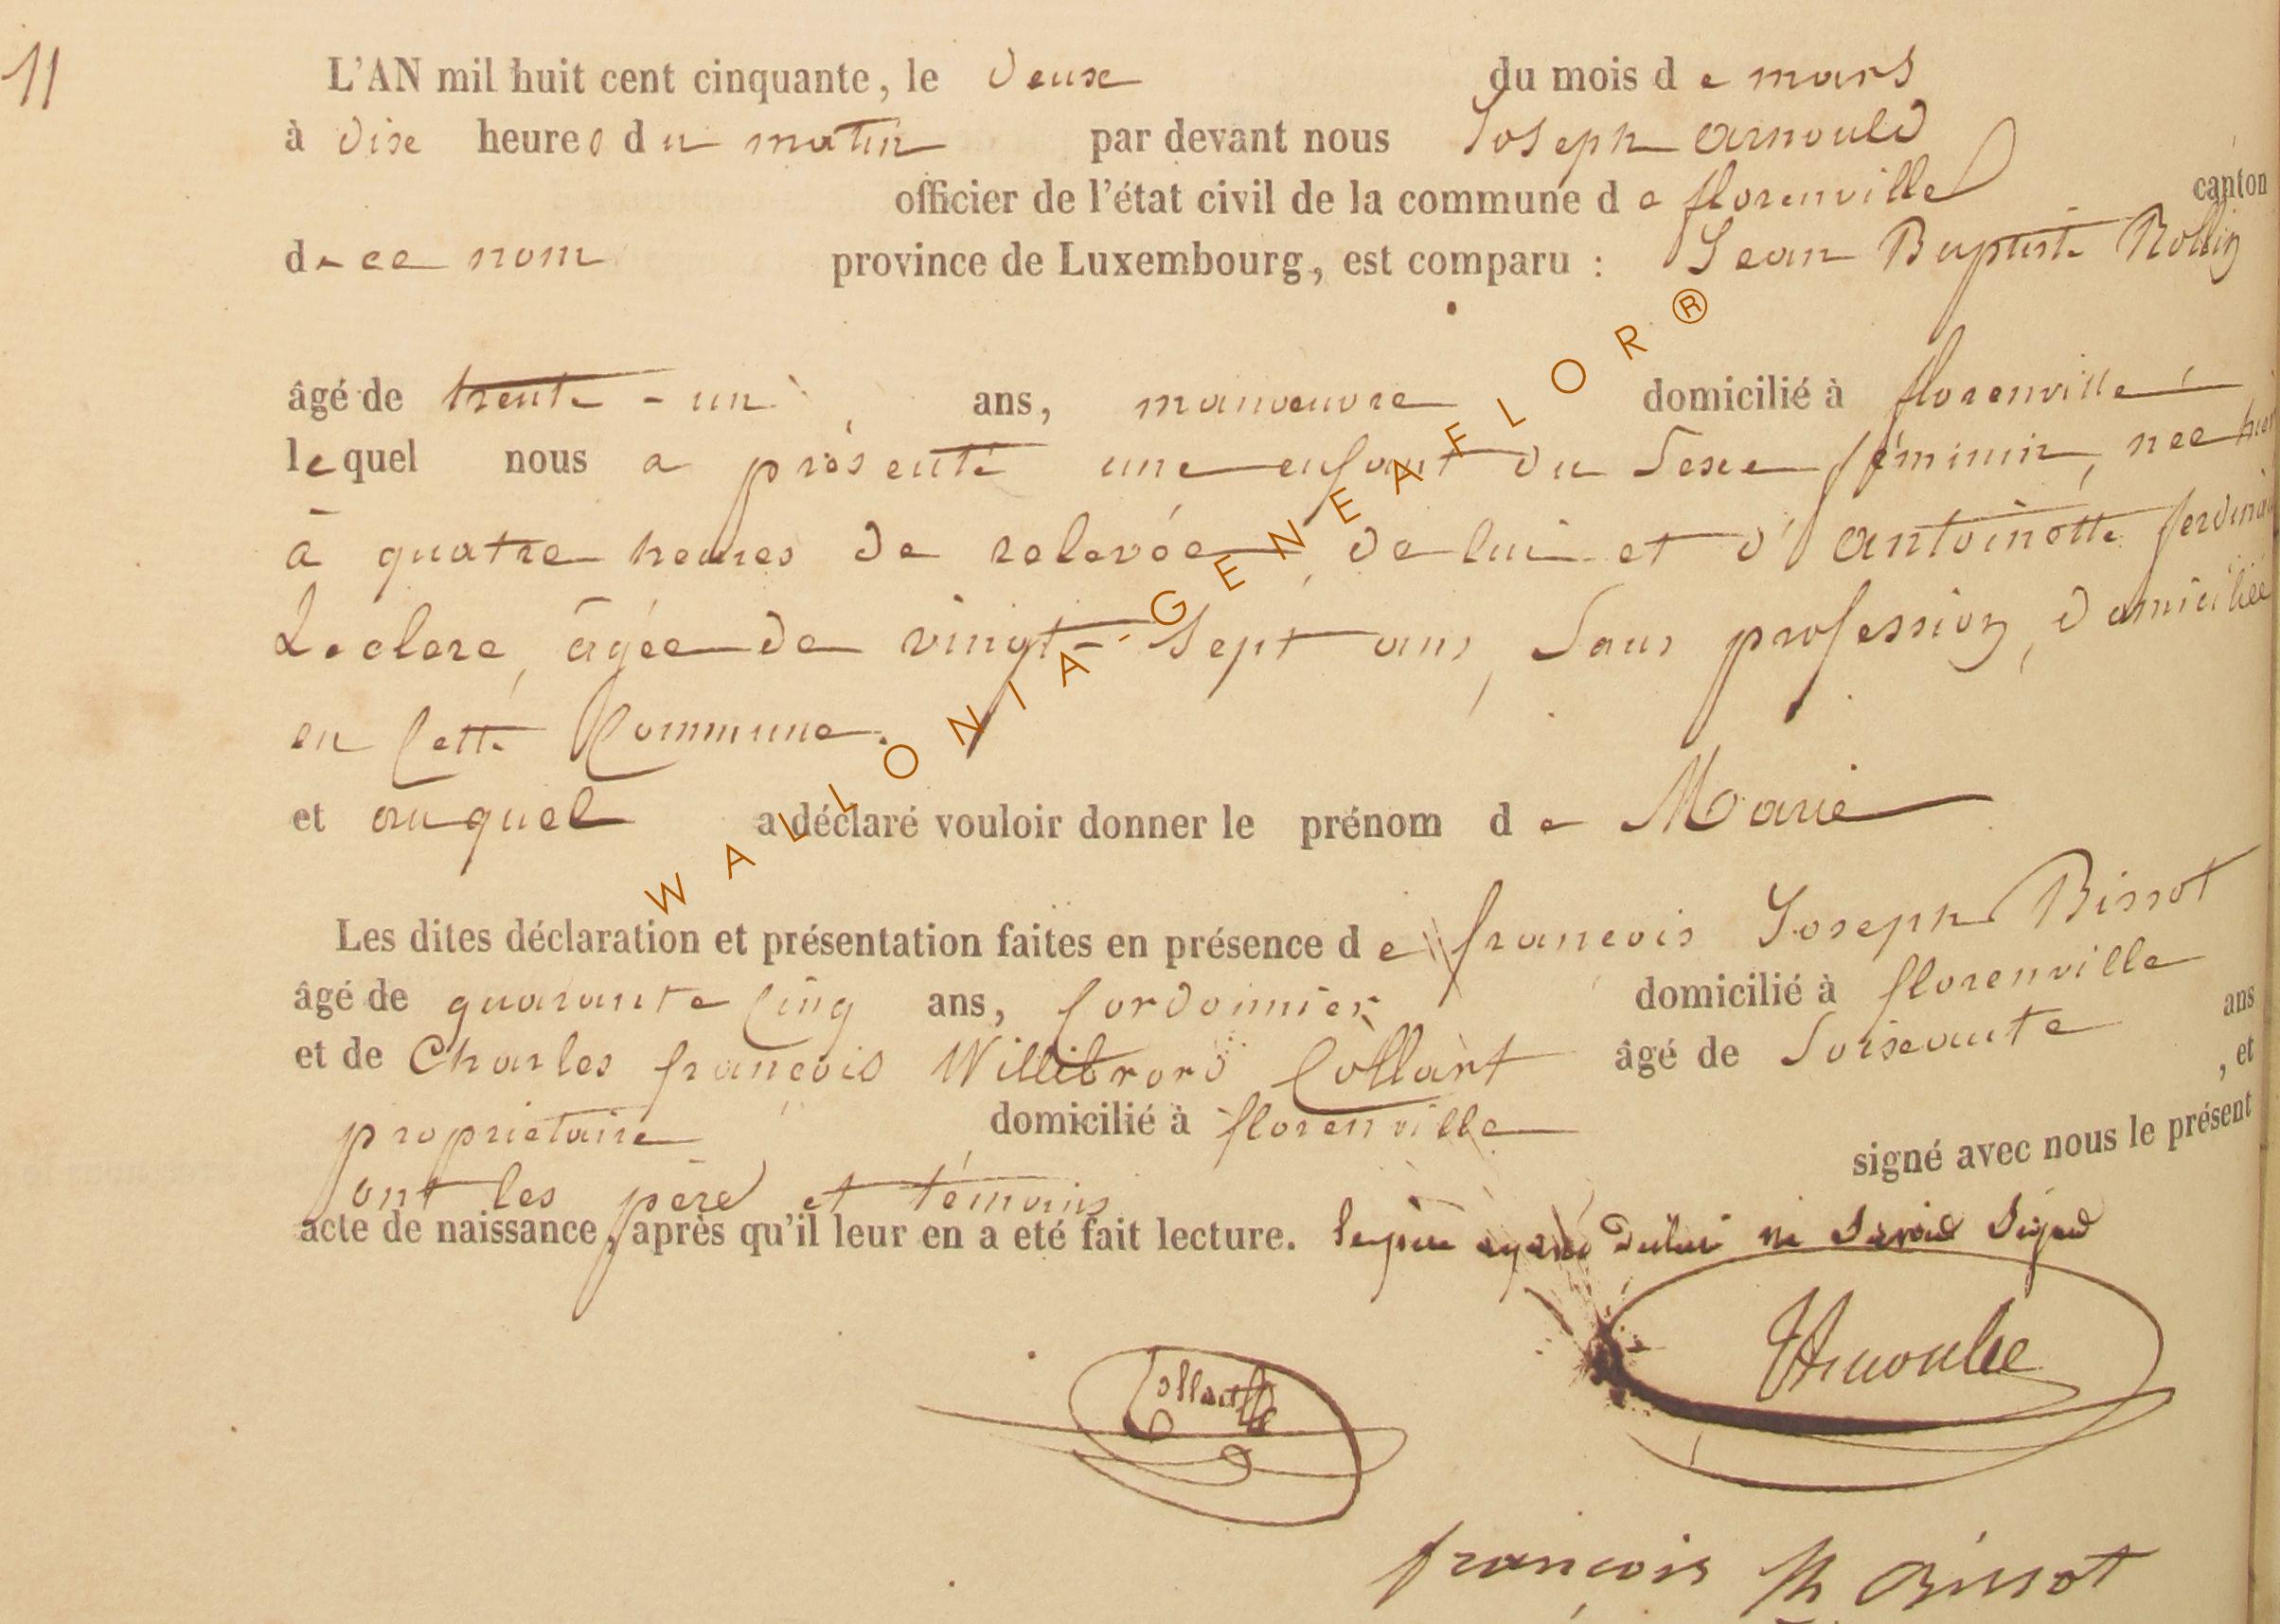 11
L'AN mil huit cent cinquante, le deux du mois de mars
à dix heures du matin par devant nous Joseph arnould
officier de l'état civil de la commune de florenville canton
de ce nom province de Luxembourg, est comparu : Jean Baptiste Rollin
âgé de trente-un ans, manoeuvre domicilié à florenville
lequel nous a présenté une enfant du Sexe féminin, née hier
à quatre heures de relevée, de lui et d'antoinette
Leclere, âgée de vingt-Sept ans, Sans profession, domiciliée
en Cette Commune.
et auquel a déclaré vouloir donner le prénom de Marie
Les dites déclaration et présentation faites en présence de francois Joseph Bissot
âgé de quarante Cinq ans, Cordonnier domicilié à florenville
et de Charles françois Willibrord Collart âgé de Soixante ans
propriétaire domicilié à florenville , et
ont les père et témoins signé avec nous le présent
acte de naissance, après qu'il leur en a eté fait lecture. le père ayant
Collart
françois Jh Bissot
WALLONIA-GENEAFLOR®